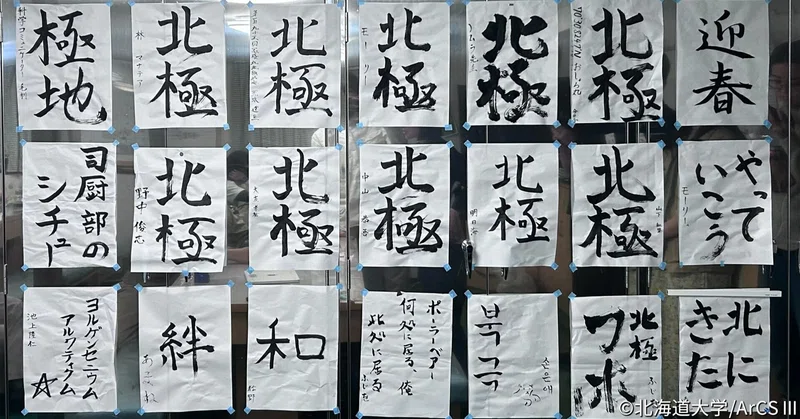 極地
北極
北極
北極
北極
北極
迎春
司厨部の
シチュー
北極
野中
北極
北極
中山
北極
北極
やって
いこう
モーリー
ヨルゲンセニウム
アルクティクム
☆
池上隆仁
絆
和
ポーラーベアー
何処に居る、俺
此処に居る
북극
손은애
北極
ワッホ
北に
きた
©北海道大学/ArCS III